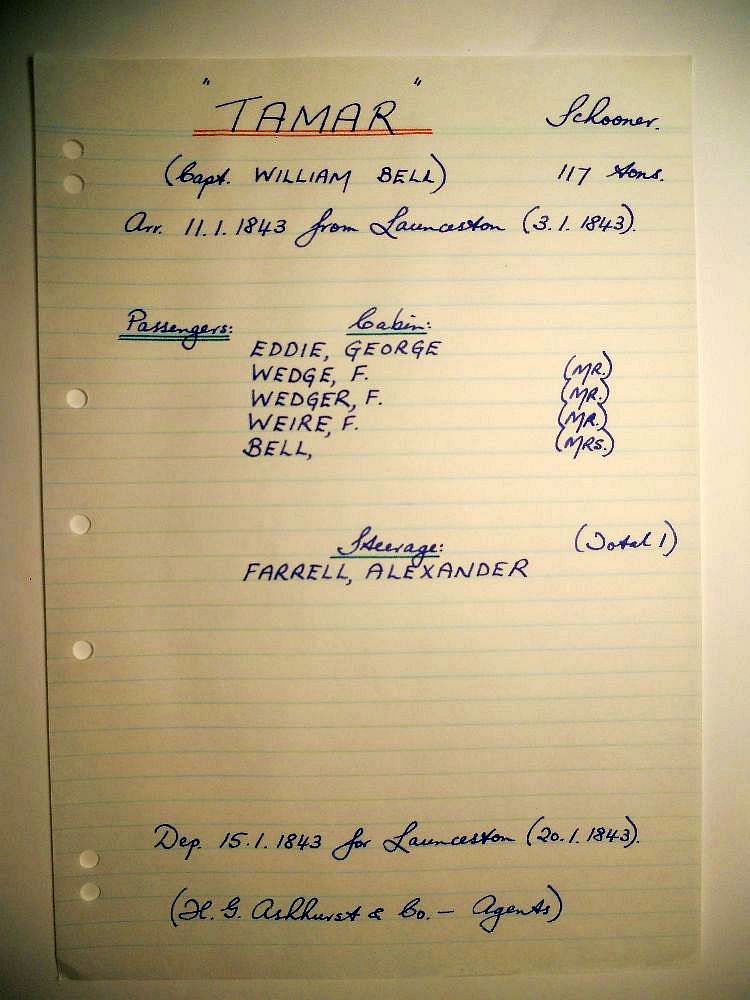 "TAMAR" Schooner.
(Capt. WILLIAM BELL) 117 tons.
Arr. 11.1.1843 from Launceston (3.1.1843).
Passengers: Cabin:
EDDIE, GEORGE
WEDGE, F. (MR.)
WEDGER, F. (MR.)
WEIRE, F. (MR.)
BELL, (MRS.)
Steerage: (Total 1)
FARRELL, ALEXANDER
Dep. 15.1.1843 for Launceston (20.1.1843).
(H. G. Ashhurst & Co. — Agents)